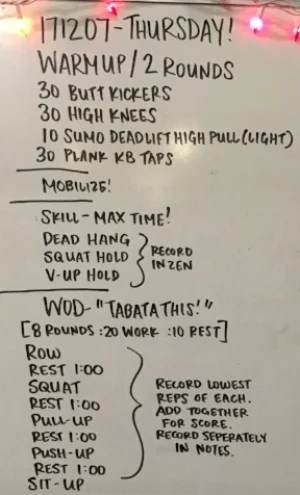 171207-THURSDAY!
WARMUP/2 ROUNDS
30 BUTT KICKERS
30 HIGH KNEES
10 SUMO DEADLIFT HIGH PULL (LIGHT)
30 PLANK KB TAPS
MOBILIZE!
SKILL - MAX TIME!
DEAD HANG
SQUAT HOLD
V-UP HOLD
RECORD
IN ZEN
WOD - "TABATA THIS!"
[8 ROUNDS :20 WORK :10 REST]
ROW
REST 1:00
SQUAT
REST 1:00
PULL-UP
REST 1:00
PUSH-UP
REST 1:00
SIT-UP
RECORD LOWEST
REPS OF EACH.
ADD TOGETHER
FOR SCORE.
RECORD SEPERATELY
IN NOTES.